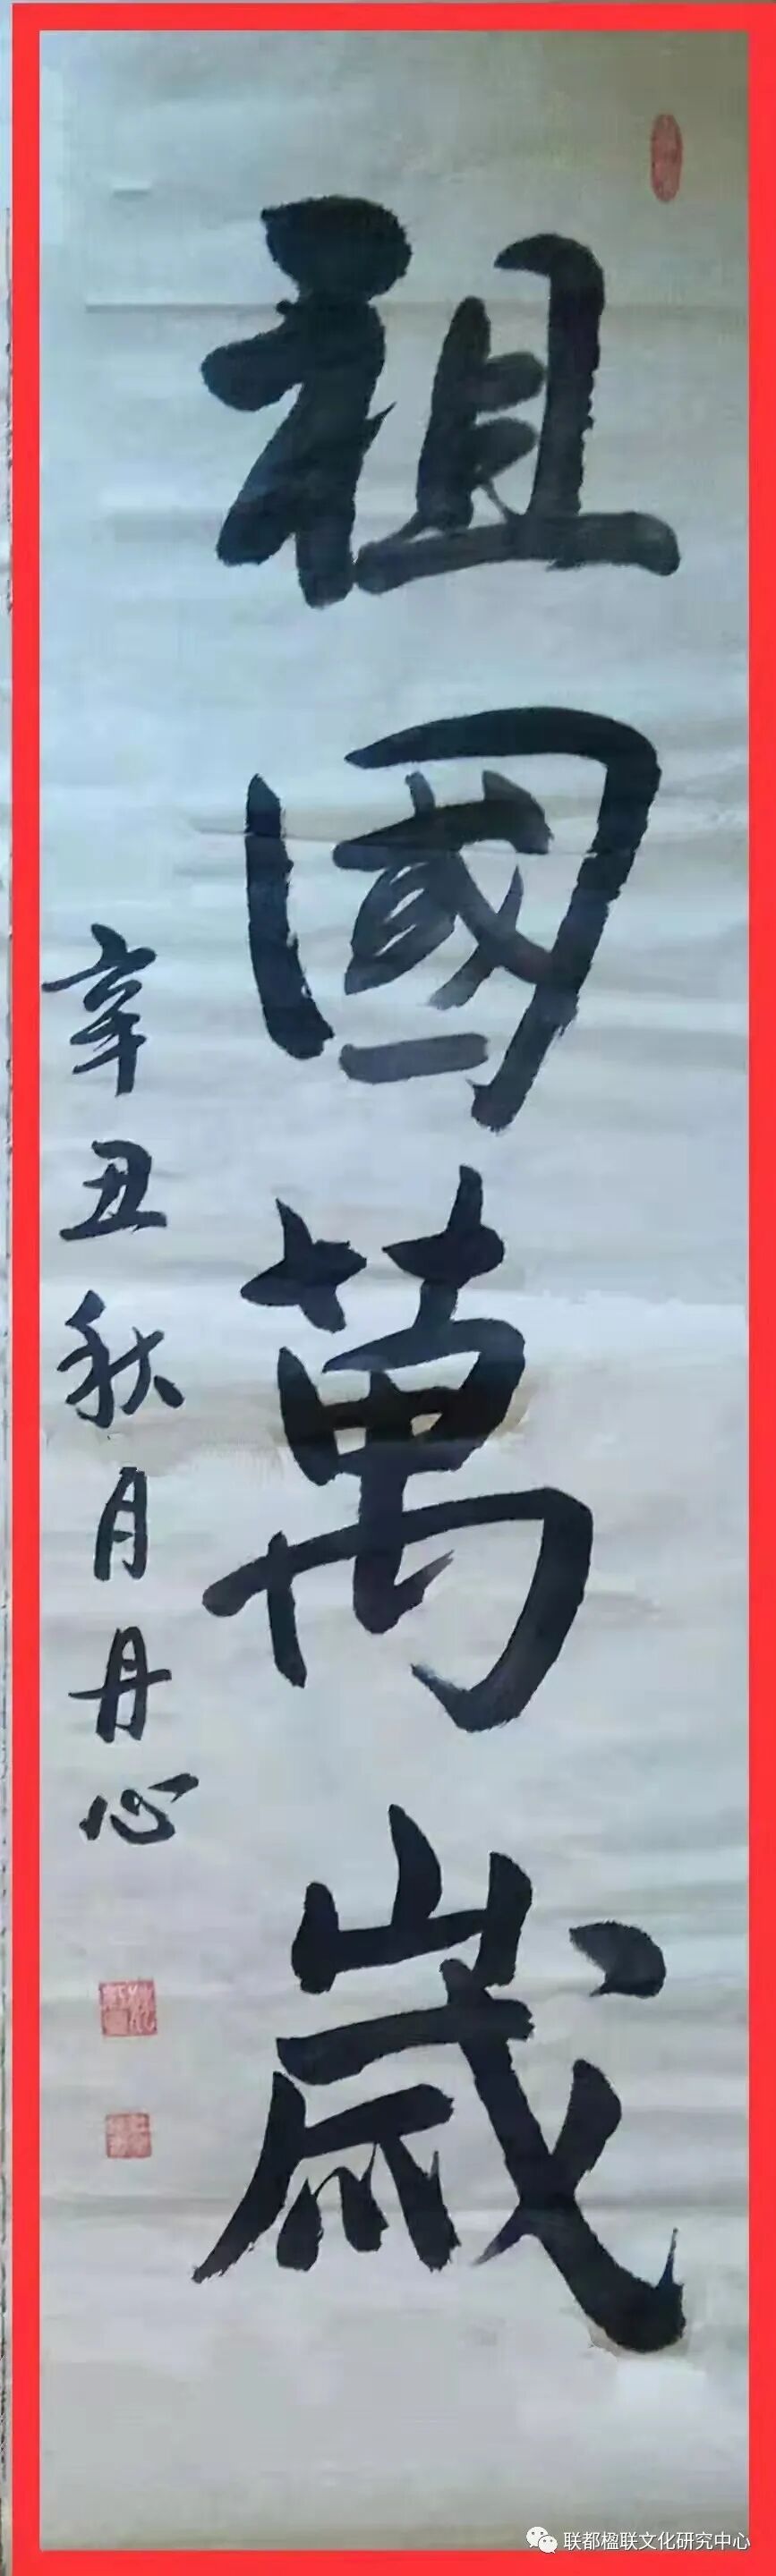 祖國萬歲
辛丑秋月丹心
联都楹联文化研究中心